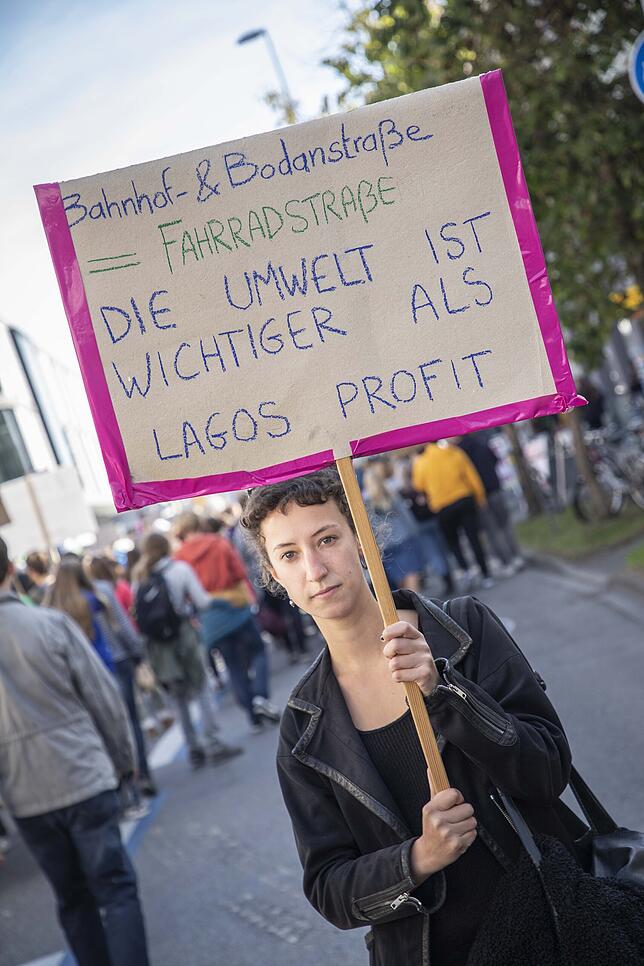 Bahnhof- & Bodanstraße
= FAHRRADSTRAßE
DIE UMWELT IST
WICHTIGER ALS
LAGOS PROFIT